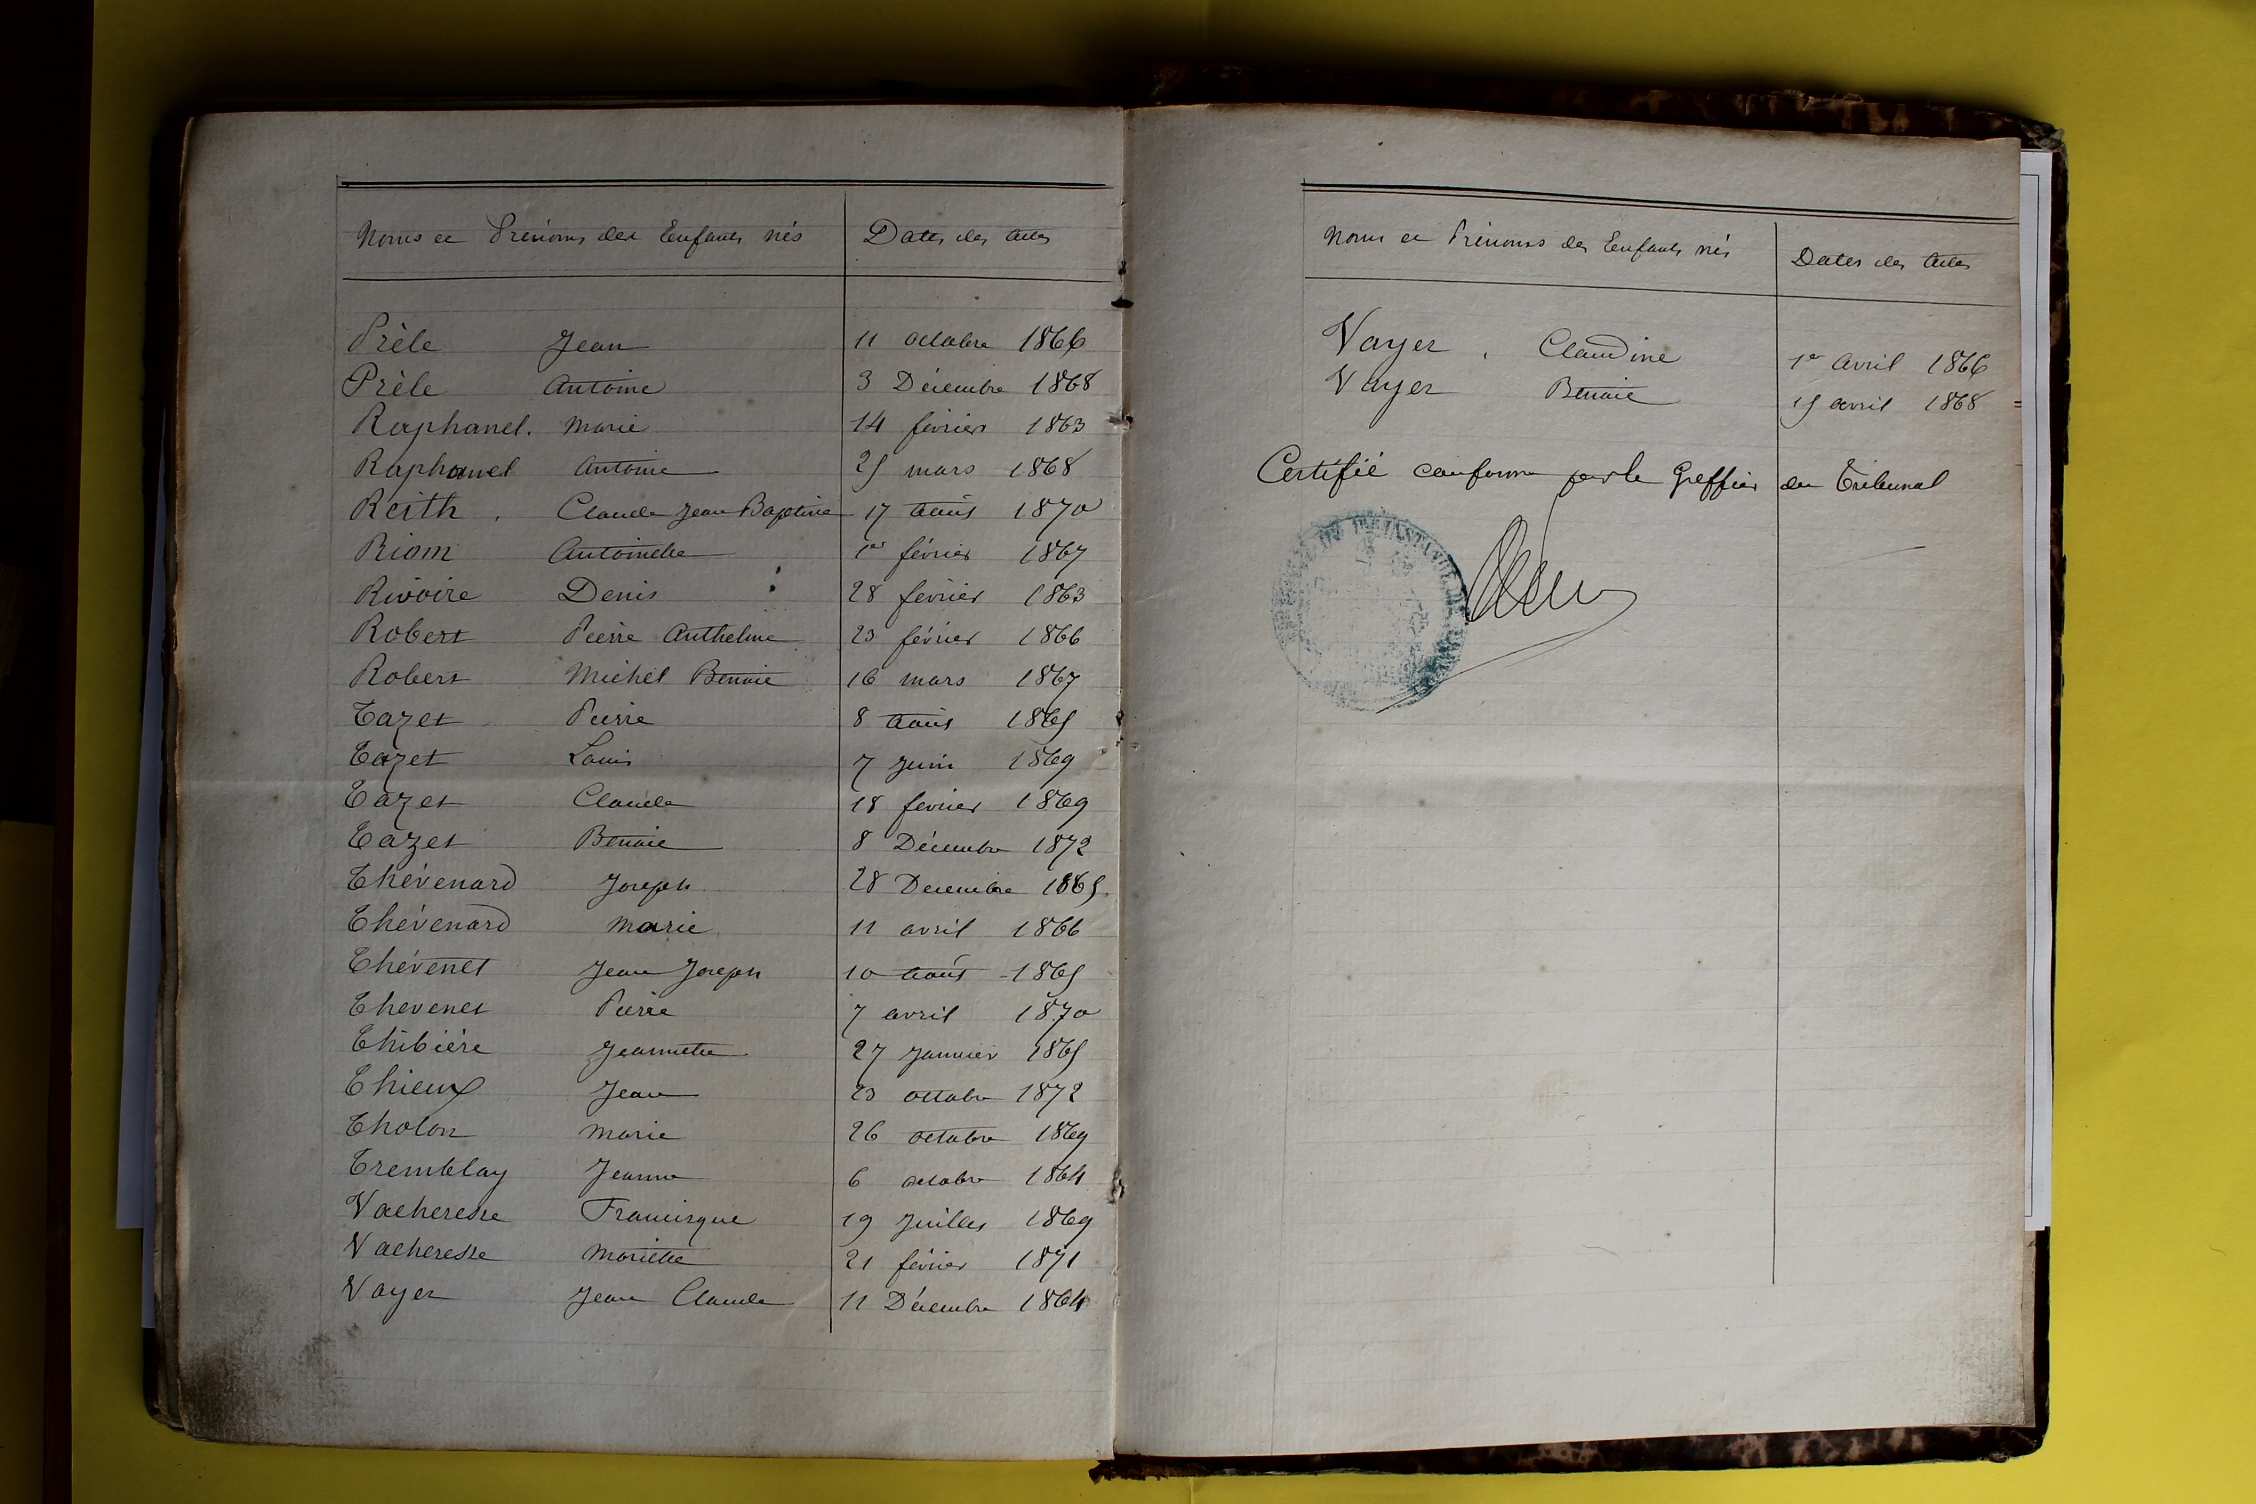 Noms et Prénoms des Enfants nés Dates des Actes
Prèle Jean 11 octobre 1866
Prèle Antoine 3 Décembre 1868
Raphanel. Marie 14 février 1863
Raphanel Antoine 25 mars 1868
Reith. Claude Jean Baptiste 17 Août 1870
Riom Antoinette 1er février 1867
Rivoire Denis 28 février 1863
Robert Pierre Anthelme 23 février 1866
Robert Michel Benoit 16 mars 1867
Tazet Pierre 8 Août 1865
Tazet Louis 7 Juin 1869
Tazet Claude 18 février 1869
Tazet Benoit 8 Décembre 1872
Thévenard Joseph 28 Décembre 1865
Thévenard Marie 11 avril 1866
Thévenet Jean Joseph 10 Août 1865
Thevenet Pierre 7 avril 1870
Thibière Jeannette 27 Janvier 1865
Thieux Jean 23 octobre 1872
Tholon Marie 26 octobre 1869
Tremblay Jeanne 6 octobre 1864
Vacheresse Francisque 19 Juillet 1869
Vacheresse Mariette 21 février 1871
Vayer Jean Claude 11 Décembre 1864
Noms et Prénoms des Enfants nés Dates des Actes
Vayer. Claudine 1er Avril 1866
Vayer Benoit 15 avril 1868
Certifié conforme par le Greffier du Tribunal